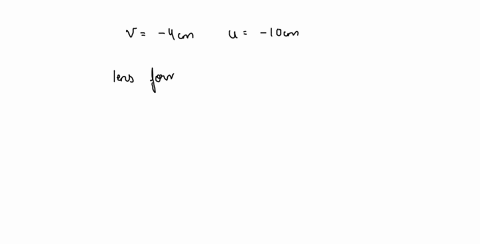 v = -4cm u = -10cm
lens for